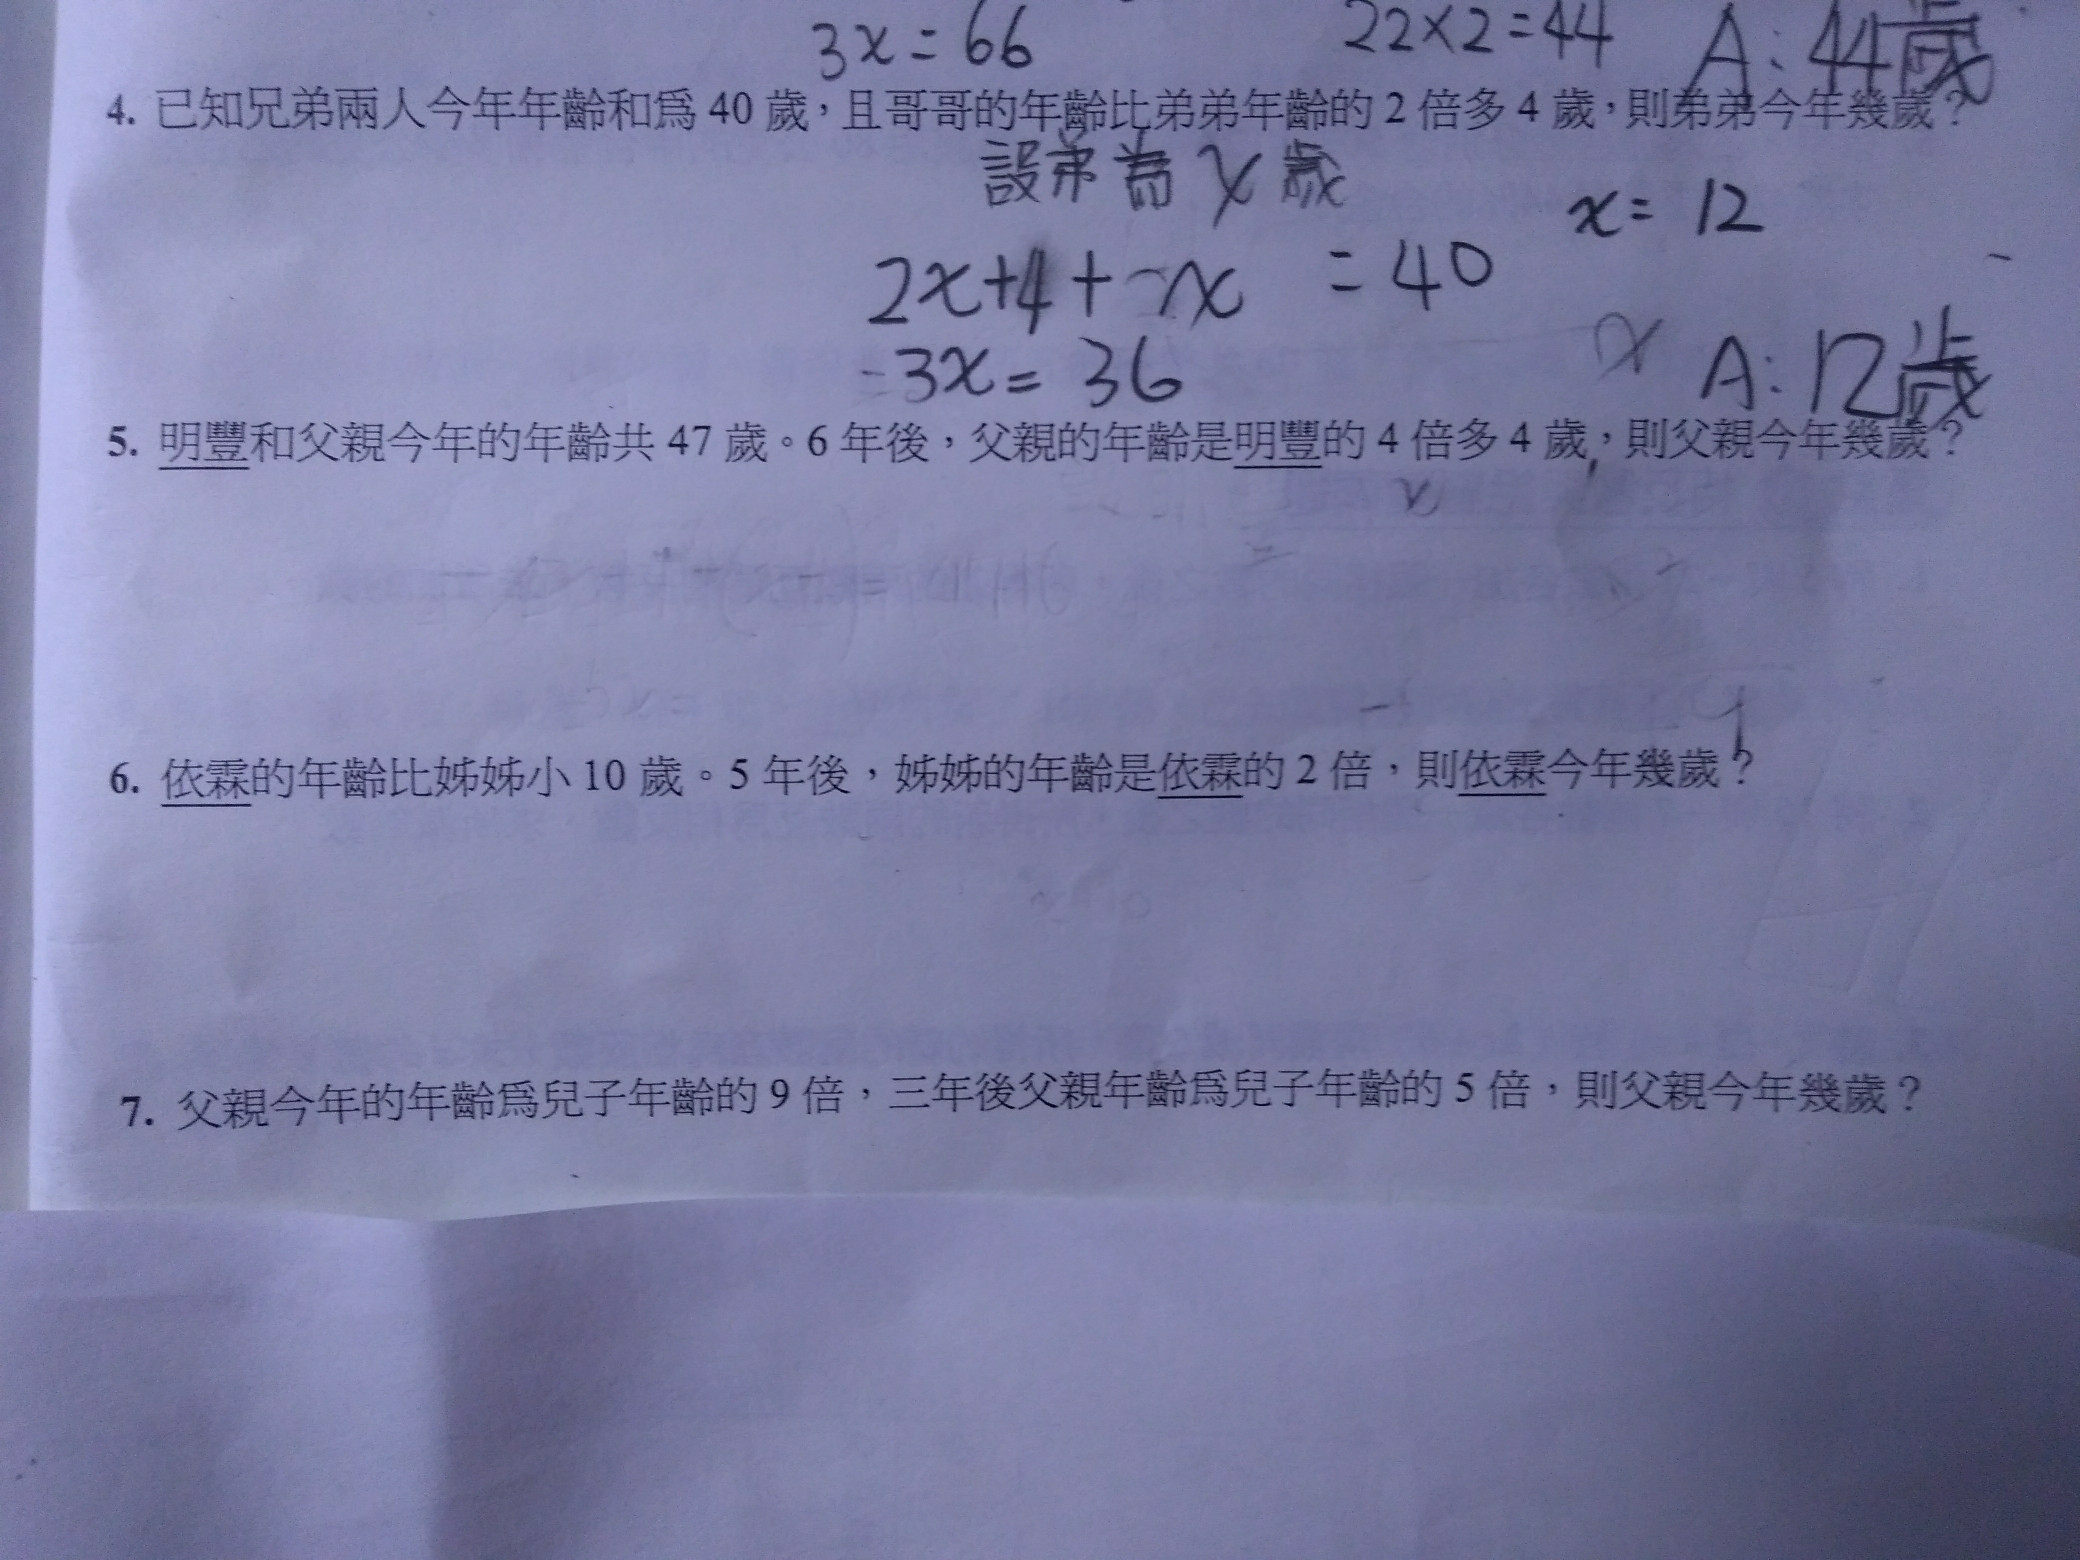 3x=66 22×2=44 A:44歲
4. 已知兄弟兩人今年年齡和為 40 歲，且哥哥的年齡比弟弟年齡的 2 倍多 4 歲，則弟弟今年幾歲？
設弟為 x 歲
x= 12
2x+4+x =40
3x= 36
A:12歲
5. 明豐和父親今年的年齡共 47 歲。6 年後，父親的年齡是明豐的 4 倍多 4 歲，則父親今年幾歲？
6. 依霖的年齡比姊姊小 10 歲。5 年後，姊姊的年齡是依霖的 2 倍，則依霖今年幾歲？
7. 父親今年的年齡為兒子年齡的 9 倍，三年後父親年齡為兒子年齡的 5 倍，則父親今年幾歲？